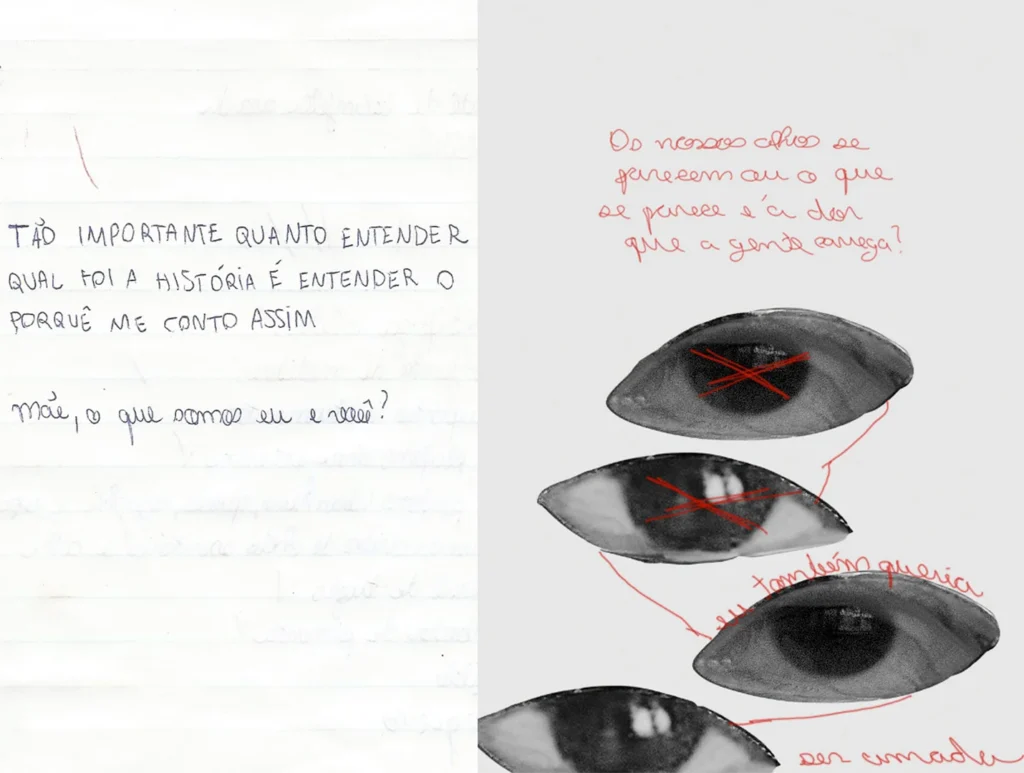 TÃO IMPORTANTE QUANTO ENTENDER
QUAL FOI A HISTÓRIA É ENTENDER O
PORQUÊ ME CONTO ASSIM
mãe, o que somos eu e você?
Os nossos olhos se
parecem ou o que
se parece é a dor
que a gente carrega?
eu também queria
ser amada